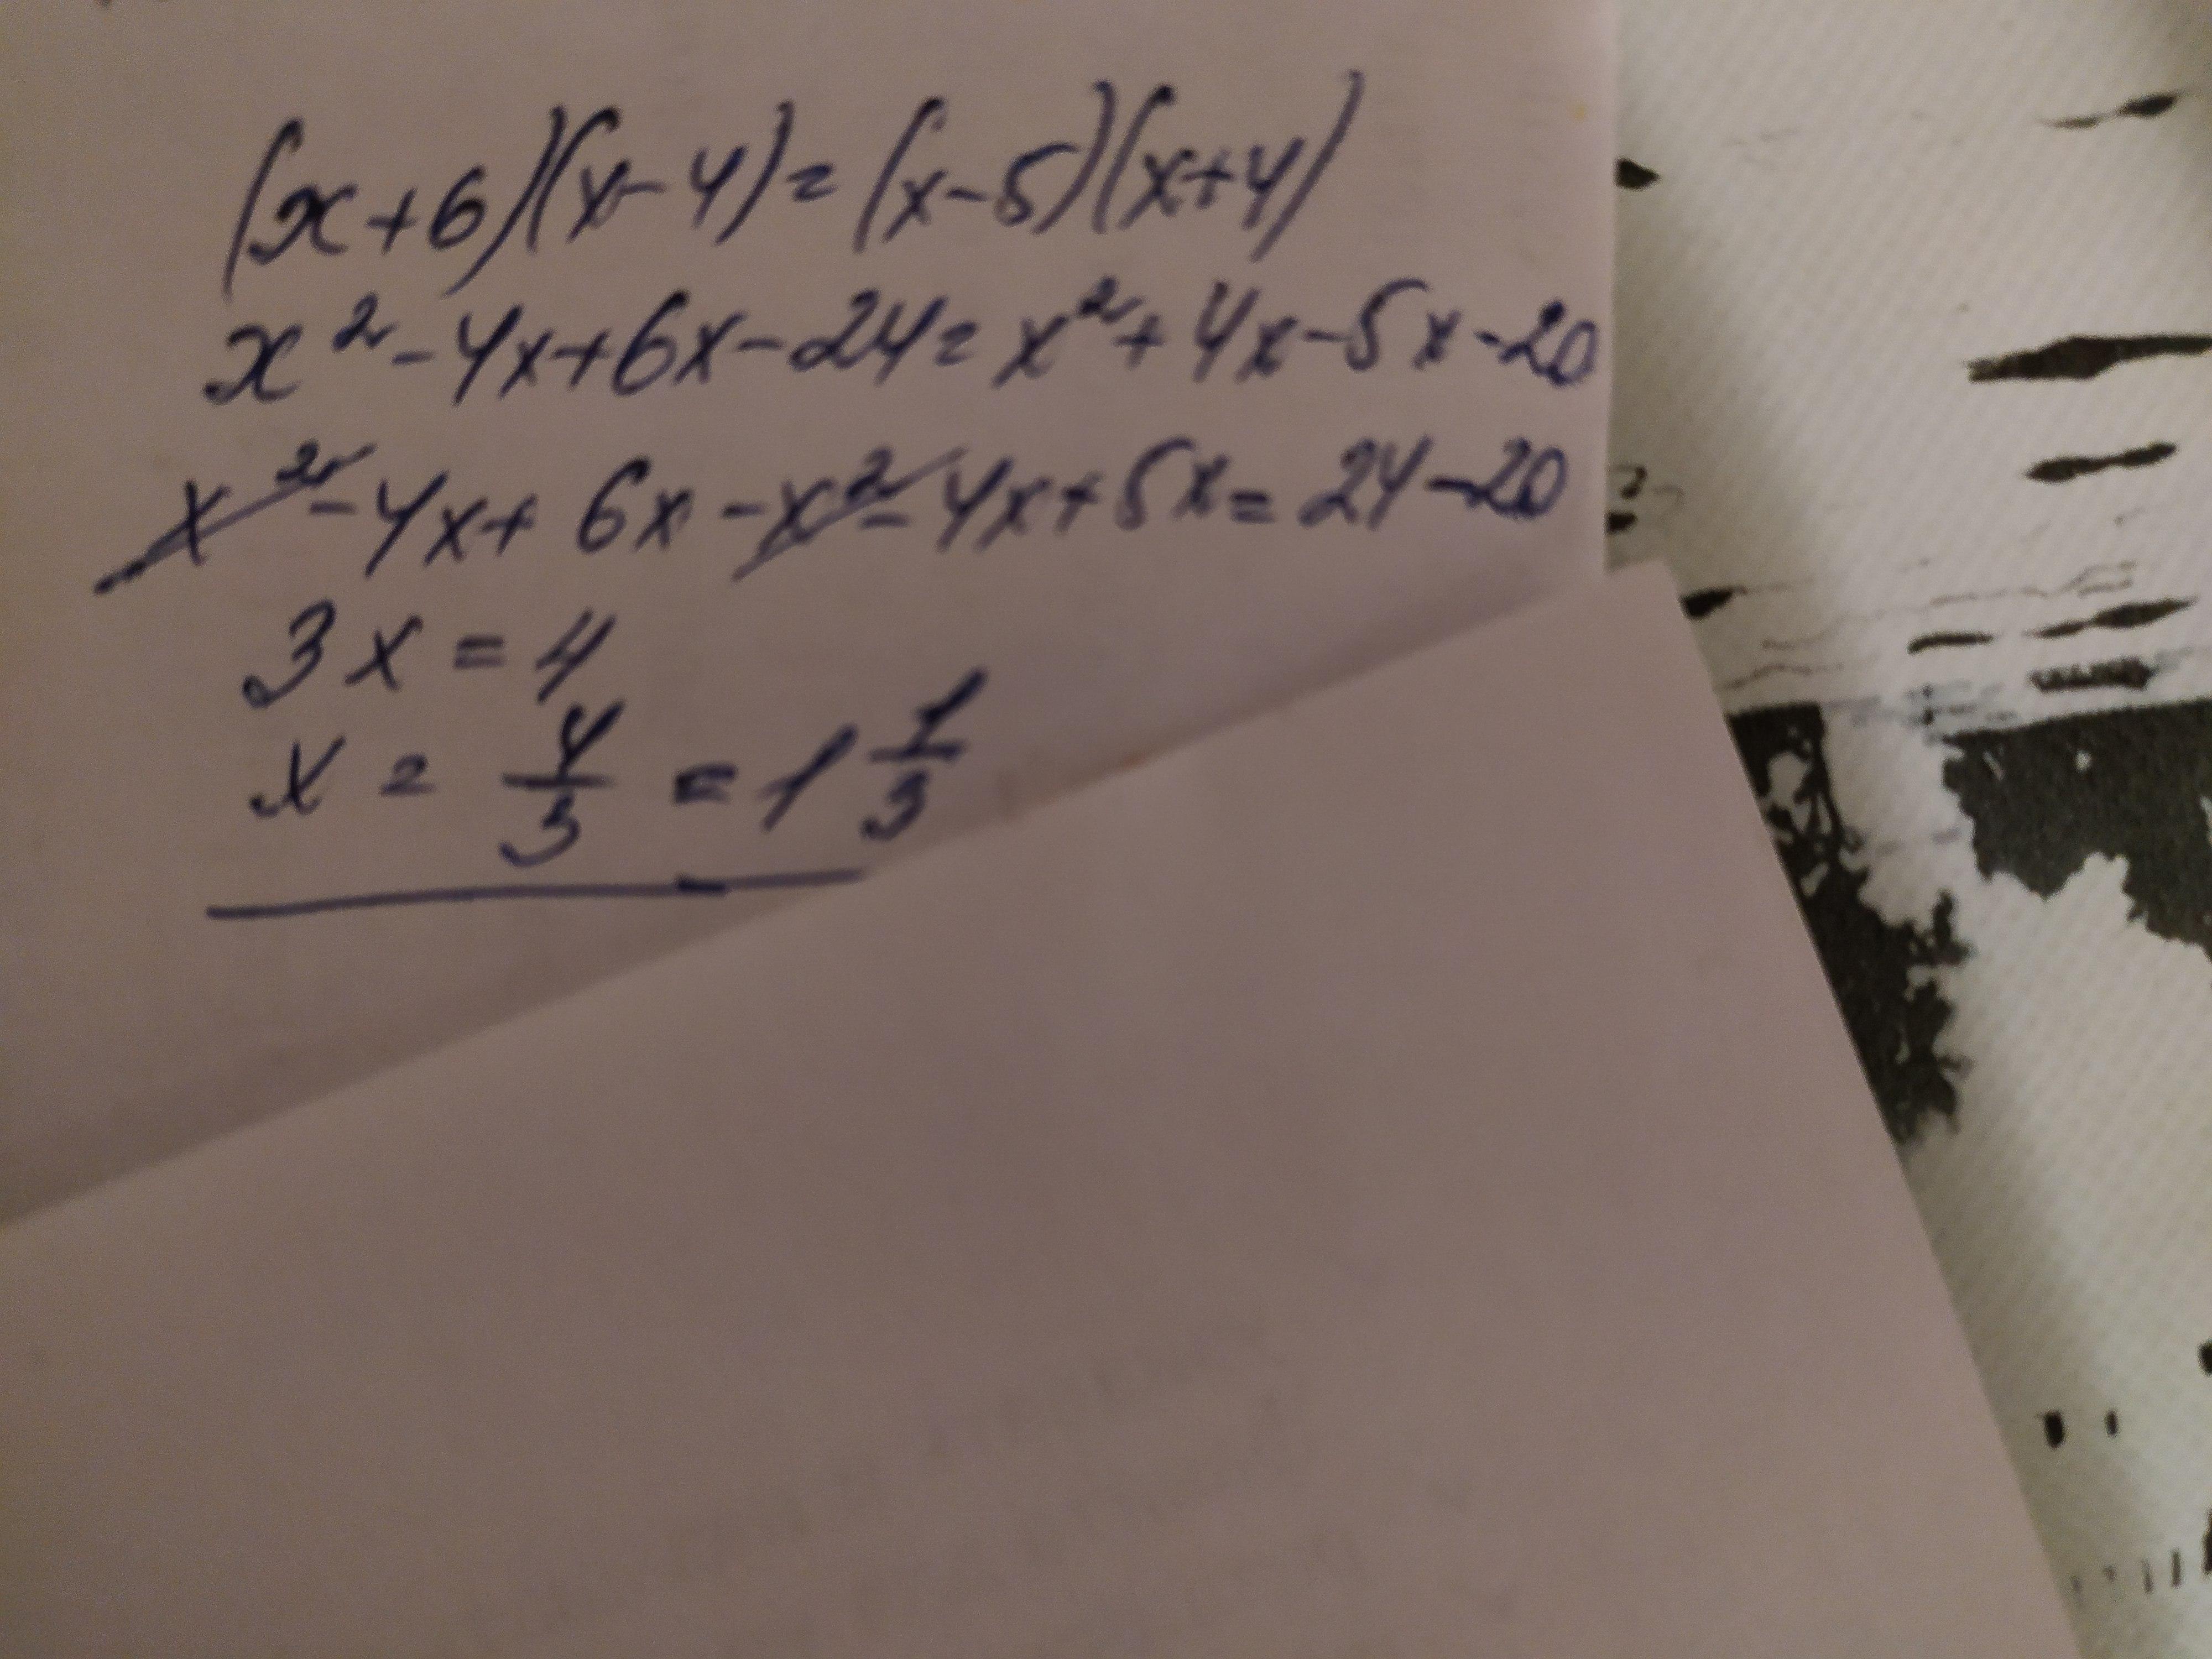 (x+6)(x-4)=(x-5)(x+4)
x²-4x+6x-24=x²+4x-5x-20
x²-4x+6x-x²-4x+5x=24-20
3x=4
x=4/3=1 1/3